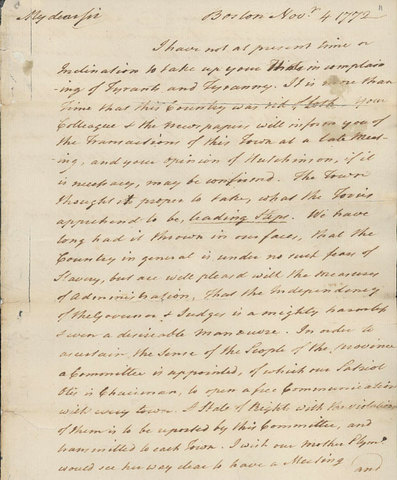 My dear sir Boston Novr 4 1772
I have not at present time or
Inclination to take up your time in complain
ing of Tyrants and Tyranny. It is more than
time that this Country was rid of both. Your
Colleague & the News papers will inform you of
the Transactions of this Town at a late Meet
ing, and your opinion of Hutchinson, if it
is necessary, may be confirmd. The Town
thought it proper to take, what the Tories
apprehend to be, leading Steps. We have
long had it thrown in our faces, that the
Country in general is under no such fears of
Slavery, but are well pleasd with the measures
of Administration, That the Independency
of the Governor & Judges is a mighty harmless
& even a desireable Manœuvre. In order to
ascertain the Sense of the People of the province
a Committee is appointed, of which our Patriot
Otis is Chairman, to open a free Communication
with every town. A State of Rights with the violations
of them is to be reported by this Committee, and
transmitted to each Town. I wish our Mother Plymo
would see her way clear to have a Meeting
and